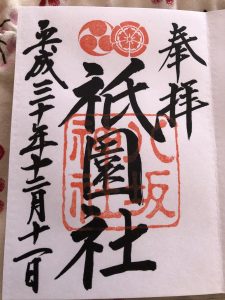 奉拝
祇園社
八坂神社
平成三十年十二月十一日